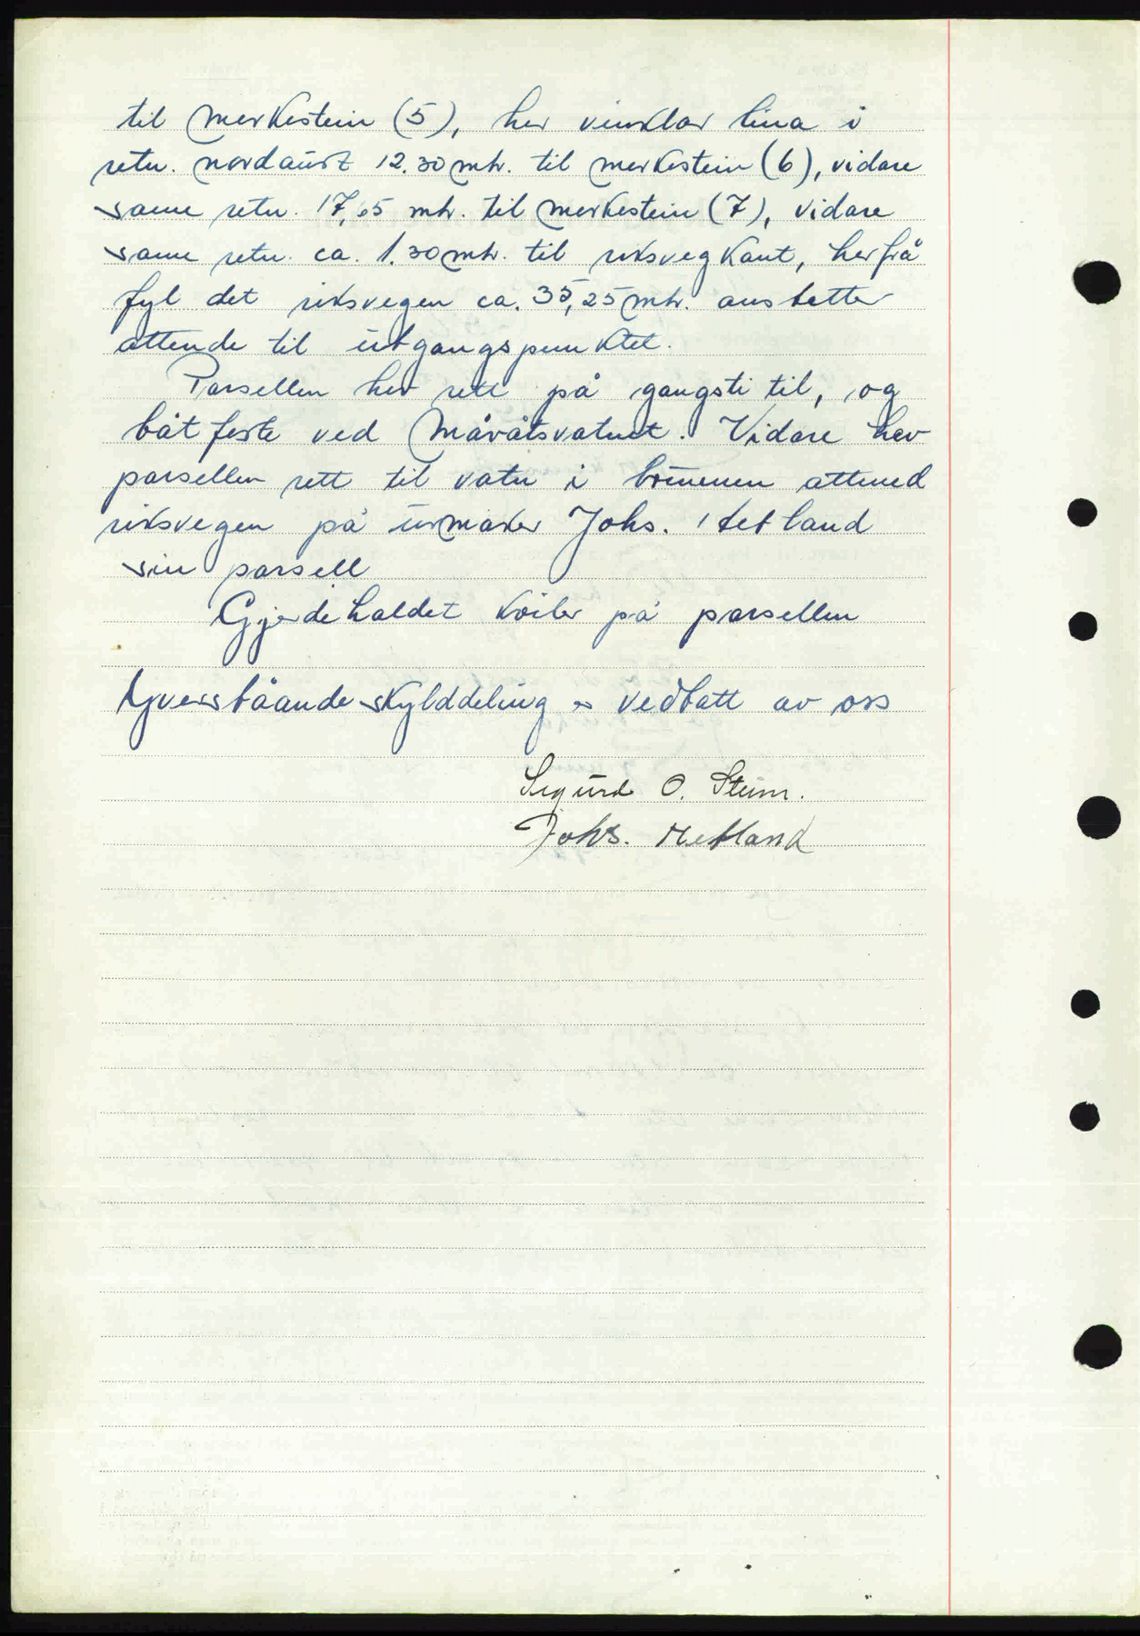 til merkestein (5), her vinklar lina i
retn. nordaust 12.30 mtr. til merkestein (6), vidare
same retn. 17,65 mtr. til merkestein (7), vidare
same retn. ca. 1.30 mtr. til riksvegkant, herfrå
fyl det riksvegen ca. 35,25 mtr. austetter
attende til utgangspunktet.
Parsellen hev rett på gangsti til, og
båtfeste ved Måvåtsvatnet. Vidare hev
parsellen rett til vatn i brunnen attmed
riksvegen på urmaker Johs. Hetland
sin parsell
Gjerdehaldet kviler på parsellen
Yverståande skylddeling er vedtatt av oss
Sigurd O. Steinr.
Johs. Hetland